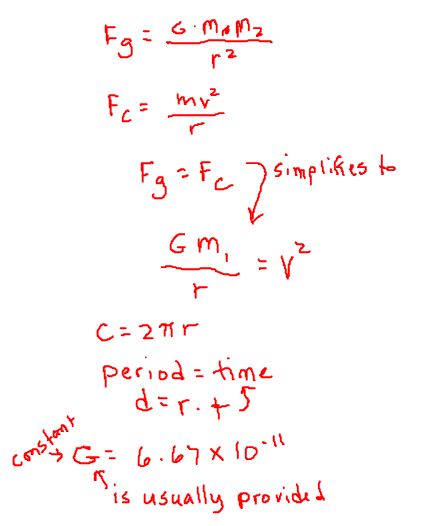 Fg = G·m₁m₂/r²
Fc = mv²/r
Fg = Fc simplifies to
Gm₁/r = v²
C = 2πr
period = time
d = r·t
constant → G = 6.67 × 10⁻¹¹
is usually provided